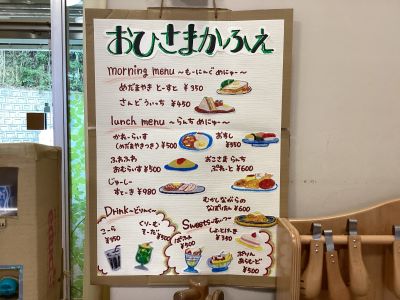 おひさまかふぇ
morning menu ～もーにんぐめにゅー～
めだまやき とーすと ¥350
さんどうぃっち ¥450
lunch menu ～らんちめにゅー～
かれーらいす
(めだまやきつき) ¥500
おすし
¥550
ふわふわ
おむらいす ¥500
おこさま らんち
ぷれーと ¥600
じゅーしー
すてーき ¥980
むかしながらの
なぽりたん ¥600
Drink ～どりんく～
こーら
¥350
くりーむ
そーだ ¥500
Sweets ～すいーつ～
ぱふぇ
¥500
しょーとけーき
¥350
ぷりん
あらもーど
¥500